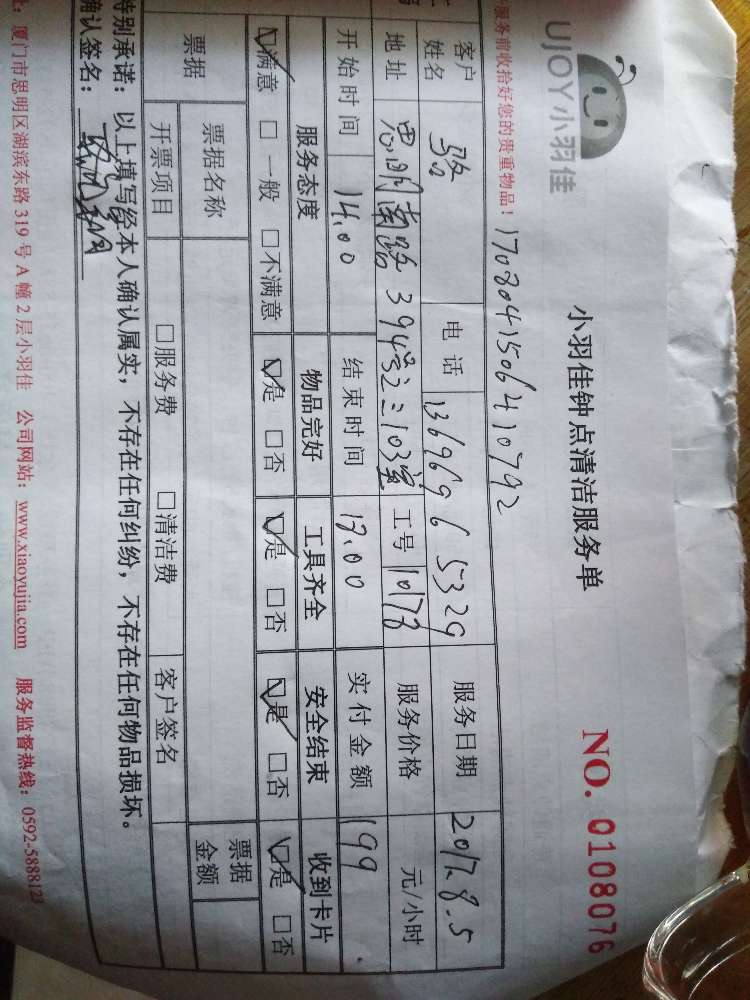 UJOY小羽佳
小羽佳钟点清洁服务单
NO. 0108076
服务前收拾好您的贵重物品！
170804150640792
客户姓名 骆 电话 13696965329 服务日期 2017.8.5
地址 思明南路394号之二103室 工号 10178 服务价格 元/小时
开始时间 14.00 结束时间 17.00 实付金额 199
服务态度 物品完好 工具齐全 安全结束 收到卡片
☑满意 □一般 □不满意 ☑是 □否 ☑是 □否 ☑是 □否 ☑是 □否
票据 票据名称 票据金额
开票项目 □服务费 □清洁费 客户签名
特别承诺：以上填写经本人确认属实，不存在任何纠纷，不存在任何物品损坏。
确认签名：
厦门市思明区湖滨东路319号A幢2层小羽佳 公司网站：www.xiaoyujia.com 服务监督热线：0592-5888123